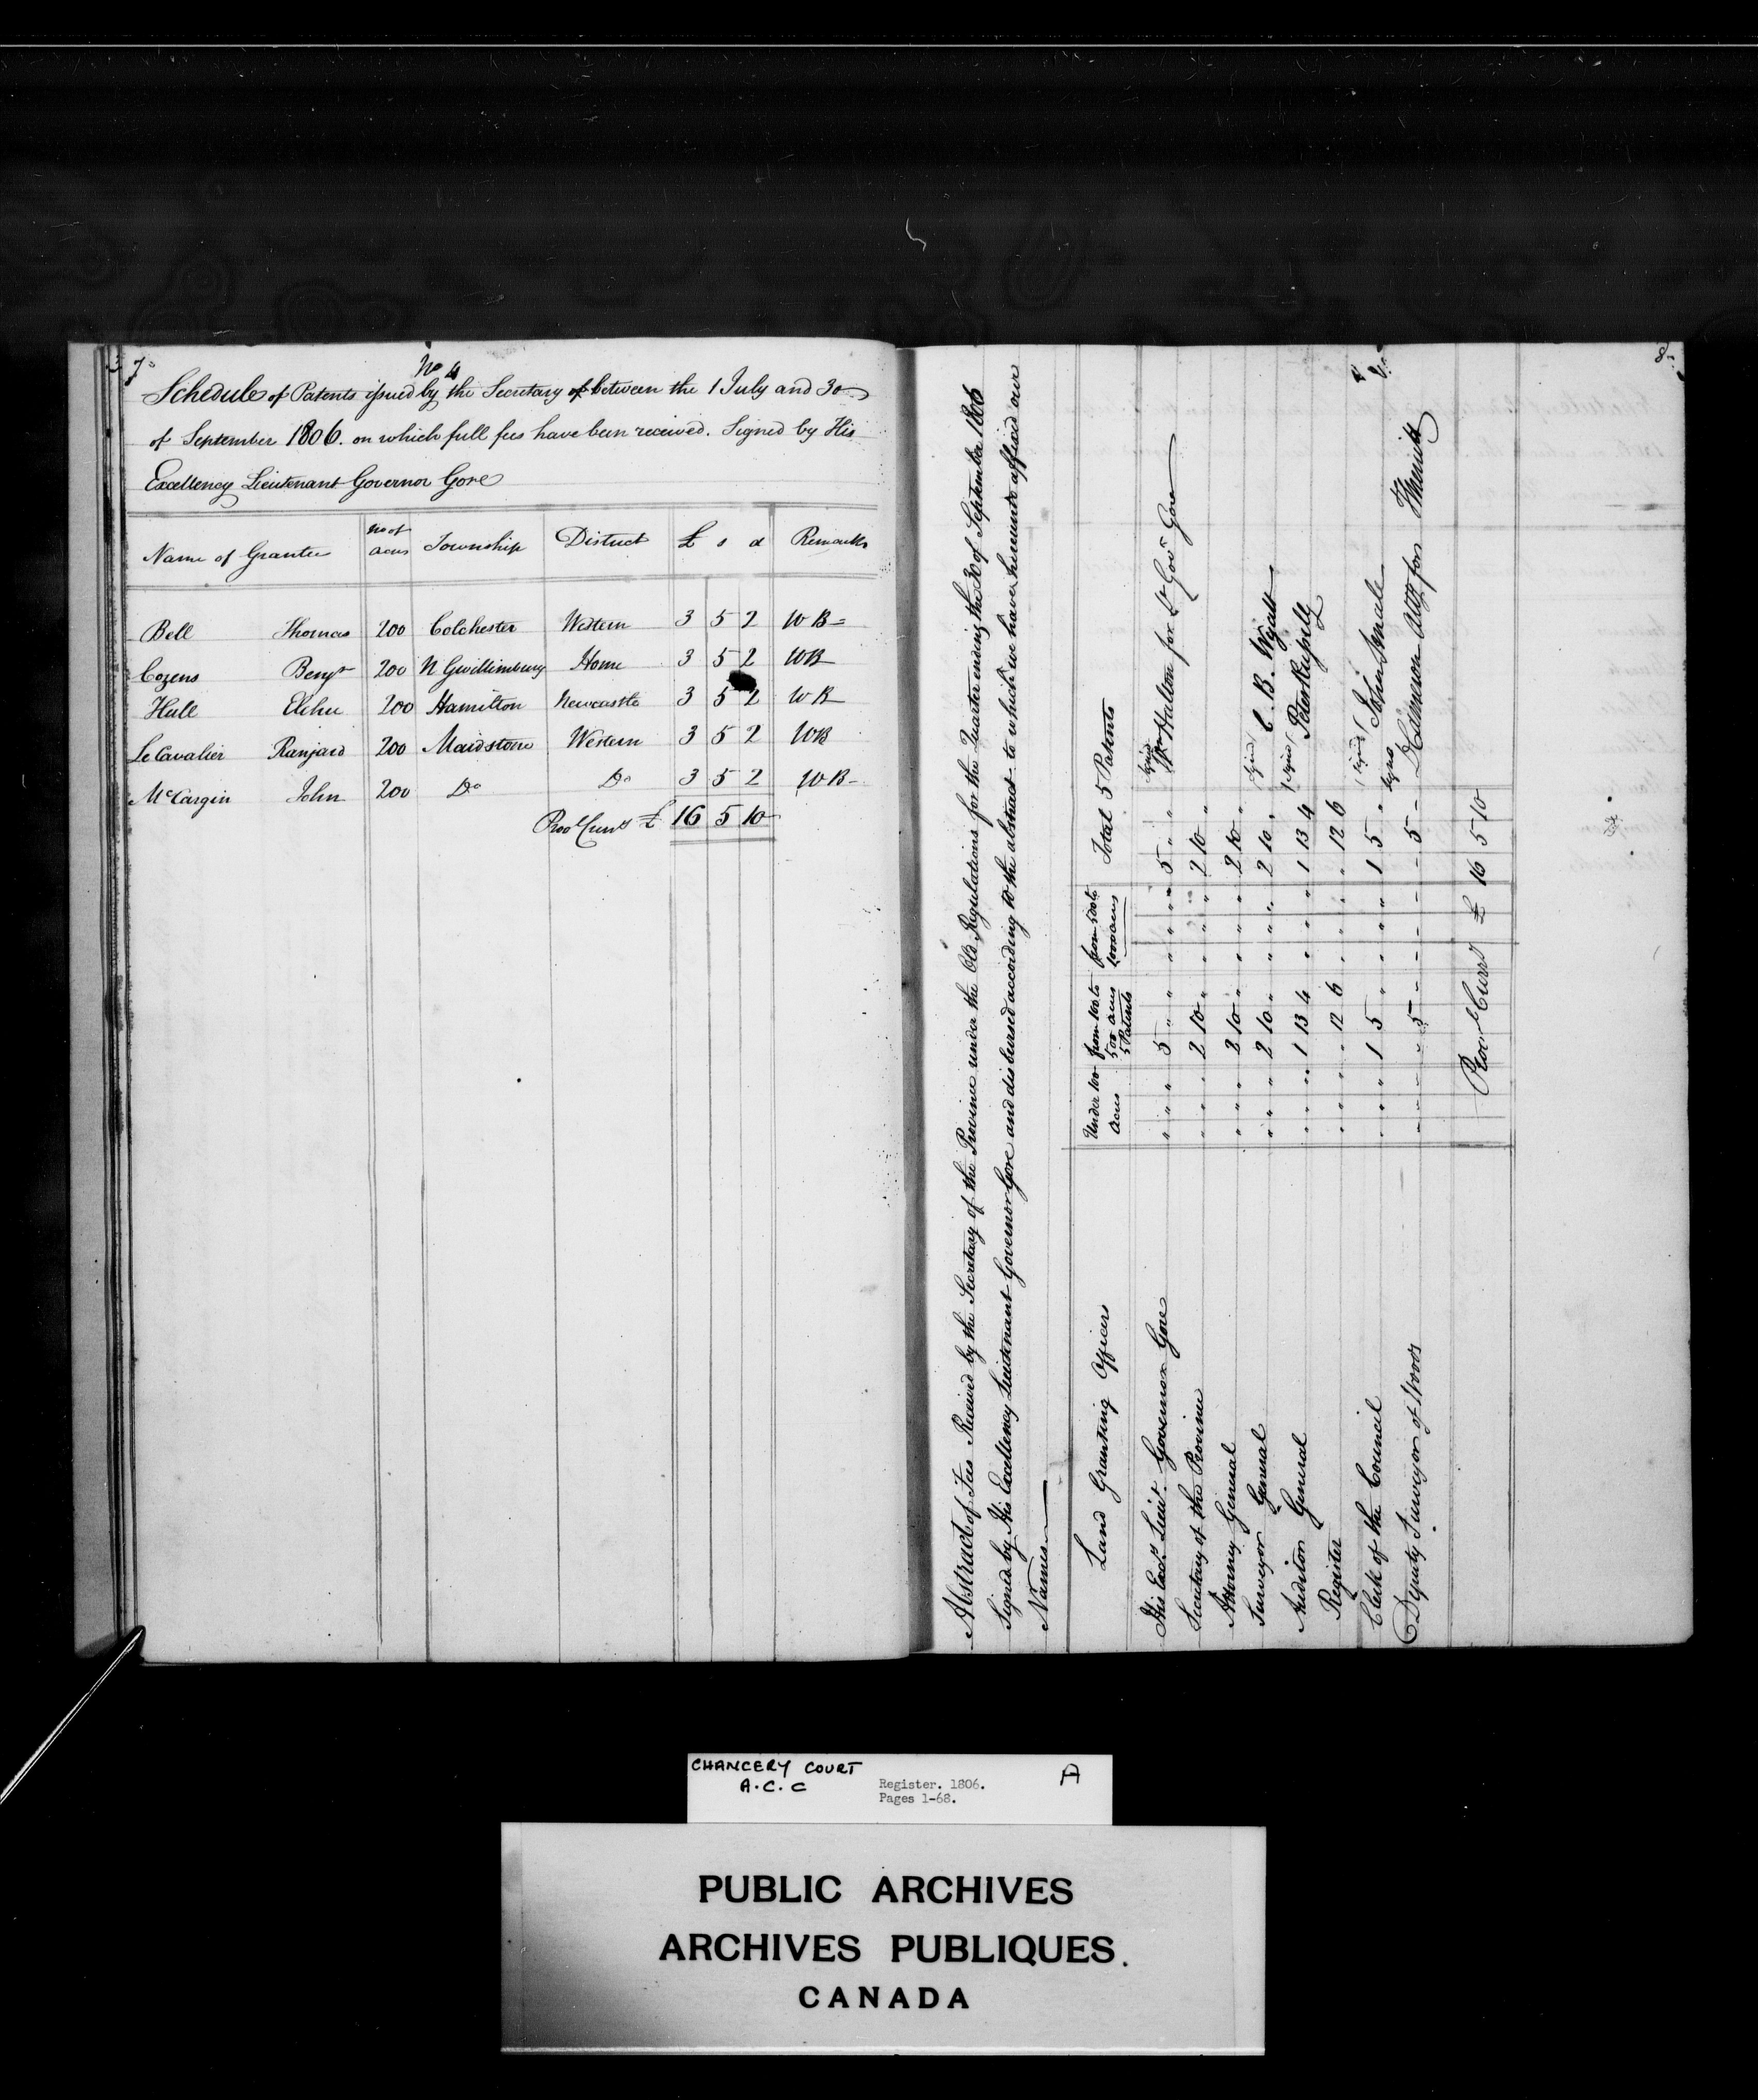 7
No 4
Schedule of Patents issued by the Secretary of between the 1 July and 30
of September 1806. on which full fees have been received. Signed by His
Excellency Lieutenant Governor Gore
Name of Grantee No of Acres Township District £ s d Remarks
Bell Thomas 200 Colchester Western 3 5 2 WB
Cozens Benjn 200 N Gwillimbury Home 3 5 2 WB
Hull Elihu 200 Hamilton Newcastle 3 5 2 WB
Le Cavalier Ranjard 200 Maidstone Western 3 5 2 WB
McCargin John 200 Do Do 3 5 2 WB
Provl Curry £ 16 5 10
8
Abstract of Fees Received by the Secretary of the Province under the Old Regulations for the Quarter ending the 30 of September 1806
Signed by His Excellency Lieutenant Governor Gore and disbursed according to the abstract to which we have hereunto affixed our
Names
Land Granting Officers Under 100 Acres from 100 to 500 acres 5 Patents from 500 to 1000 acres Total 5 Patents
His Excy Lieut Governor Gore " " " 5 " " " " " 5 " " Signed Wm Halton for Lt Govr Gore
Secretary of the Province " " " 2 10 " " " " 2 10 "
Attorney General " " " 2 10 " " " " 2 10 "
Surveyor General " " " 2 10 " " " " 2 10 " Signed C. B. Wyatt
Auditor General " " " 1 13 4 " " " 1 13 4 Signed Peter Russell
Register " " " " 12 6 " " " " 12 6
Clerk of the Council " " " 1 5 " " " " 1 5 " Signed John Small
Deputy Surveyor of Woods - - - - 5 - - - - - 5 - Signed D Cameron Atty for Merritt
Provl Curry £ 16 5 10
CHANCERY COURT
A.C.C
Register. 1806.
Pages 1-68.
A
PUBLIC ARCHIVES
ARCHIVES PUBLIQUES.
CANADA